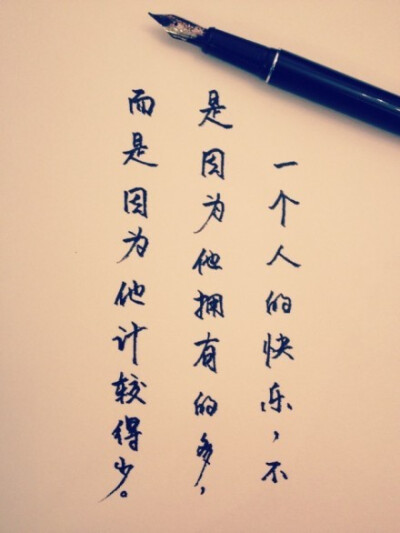 一个人的快乐，不
是因为他拥有的多，
而是因为他计较得少。